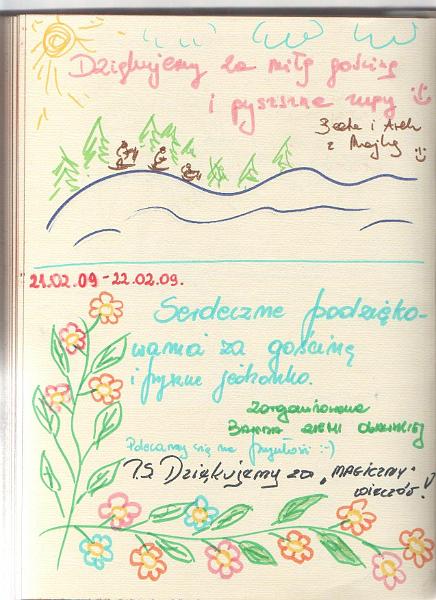 Dziękujemy za miłą gościnę
i pyszszne zupy :)
Beata i Arek
z Majką :)
21.02.09-22.02.09.
Serdeczne podzięko-
wania za gościnę
i pyszne jedzonko.
Zorganizowana
BANDA ZIEMI OŁAWSKIEJ
Polecamy się na przyszłość :-)
P.S. Dziękujemy za "MAGICZNY"
wieczór!